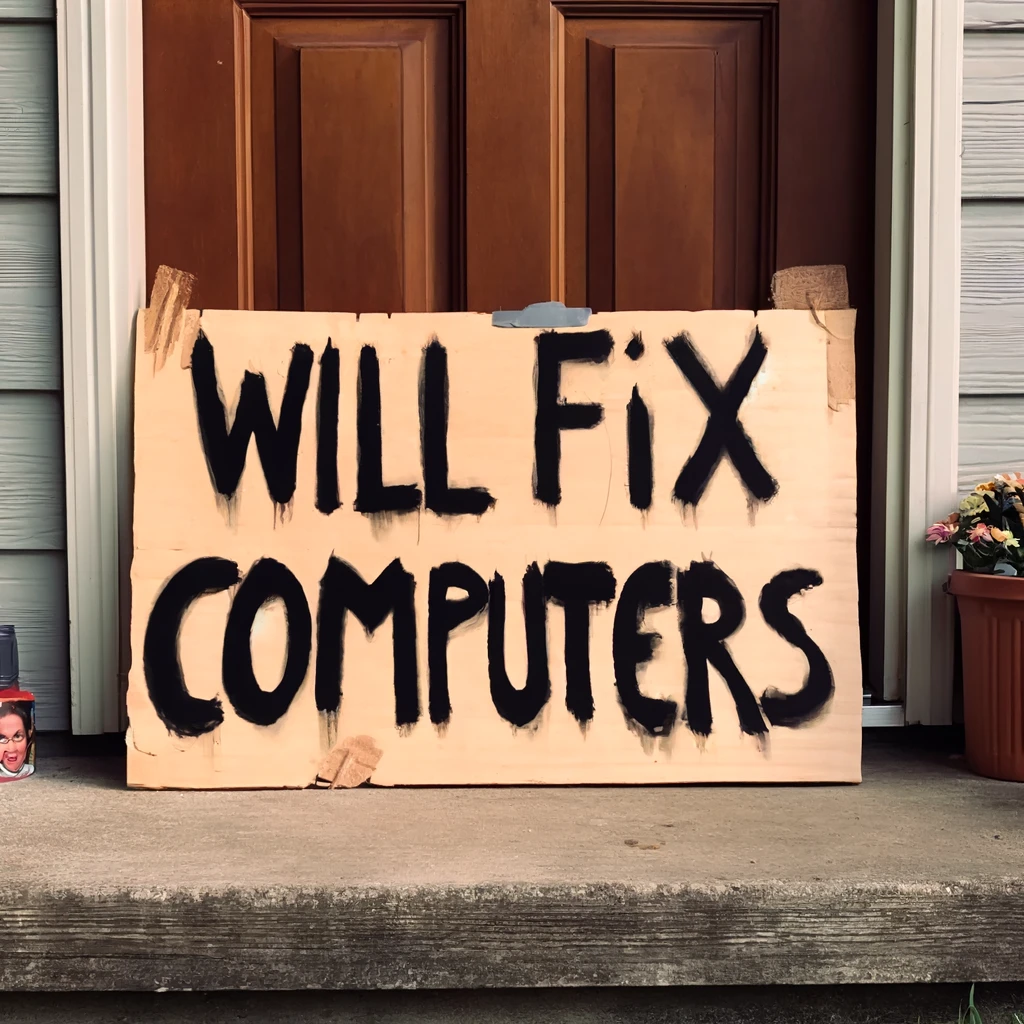 WILL FiX
COMPUTERS